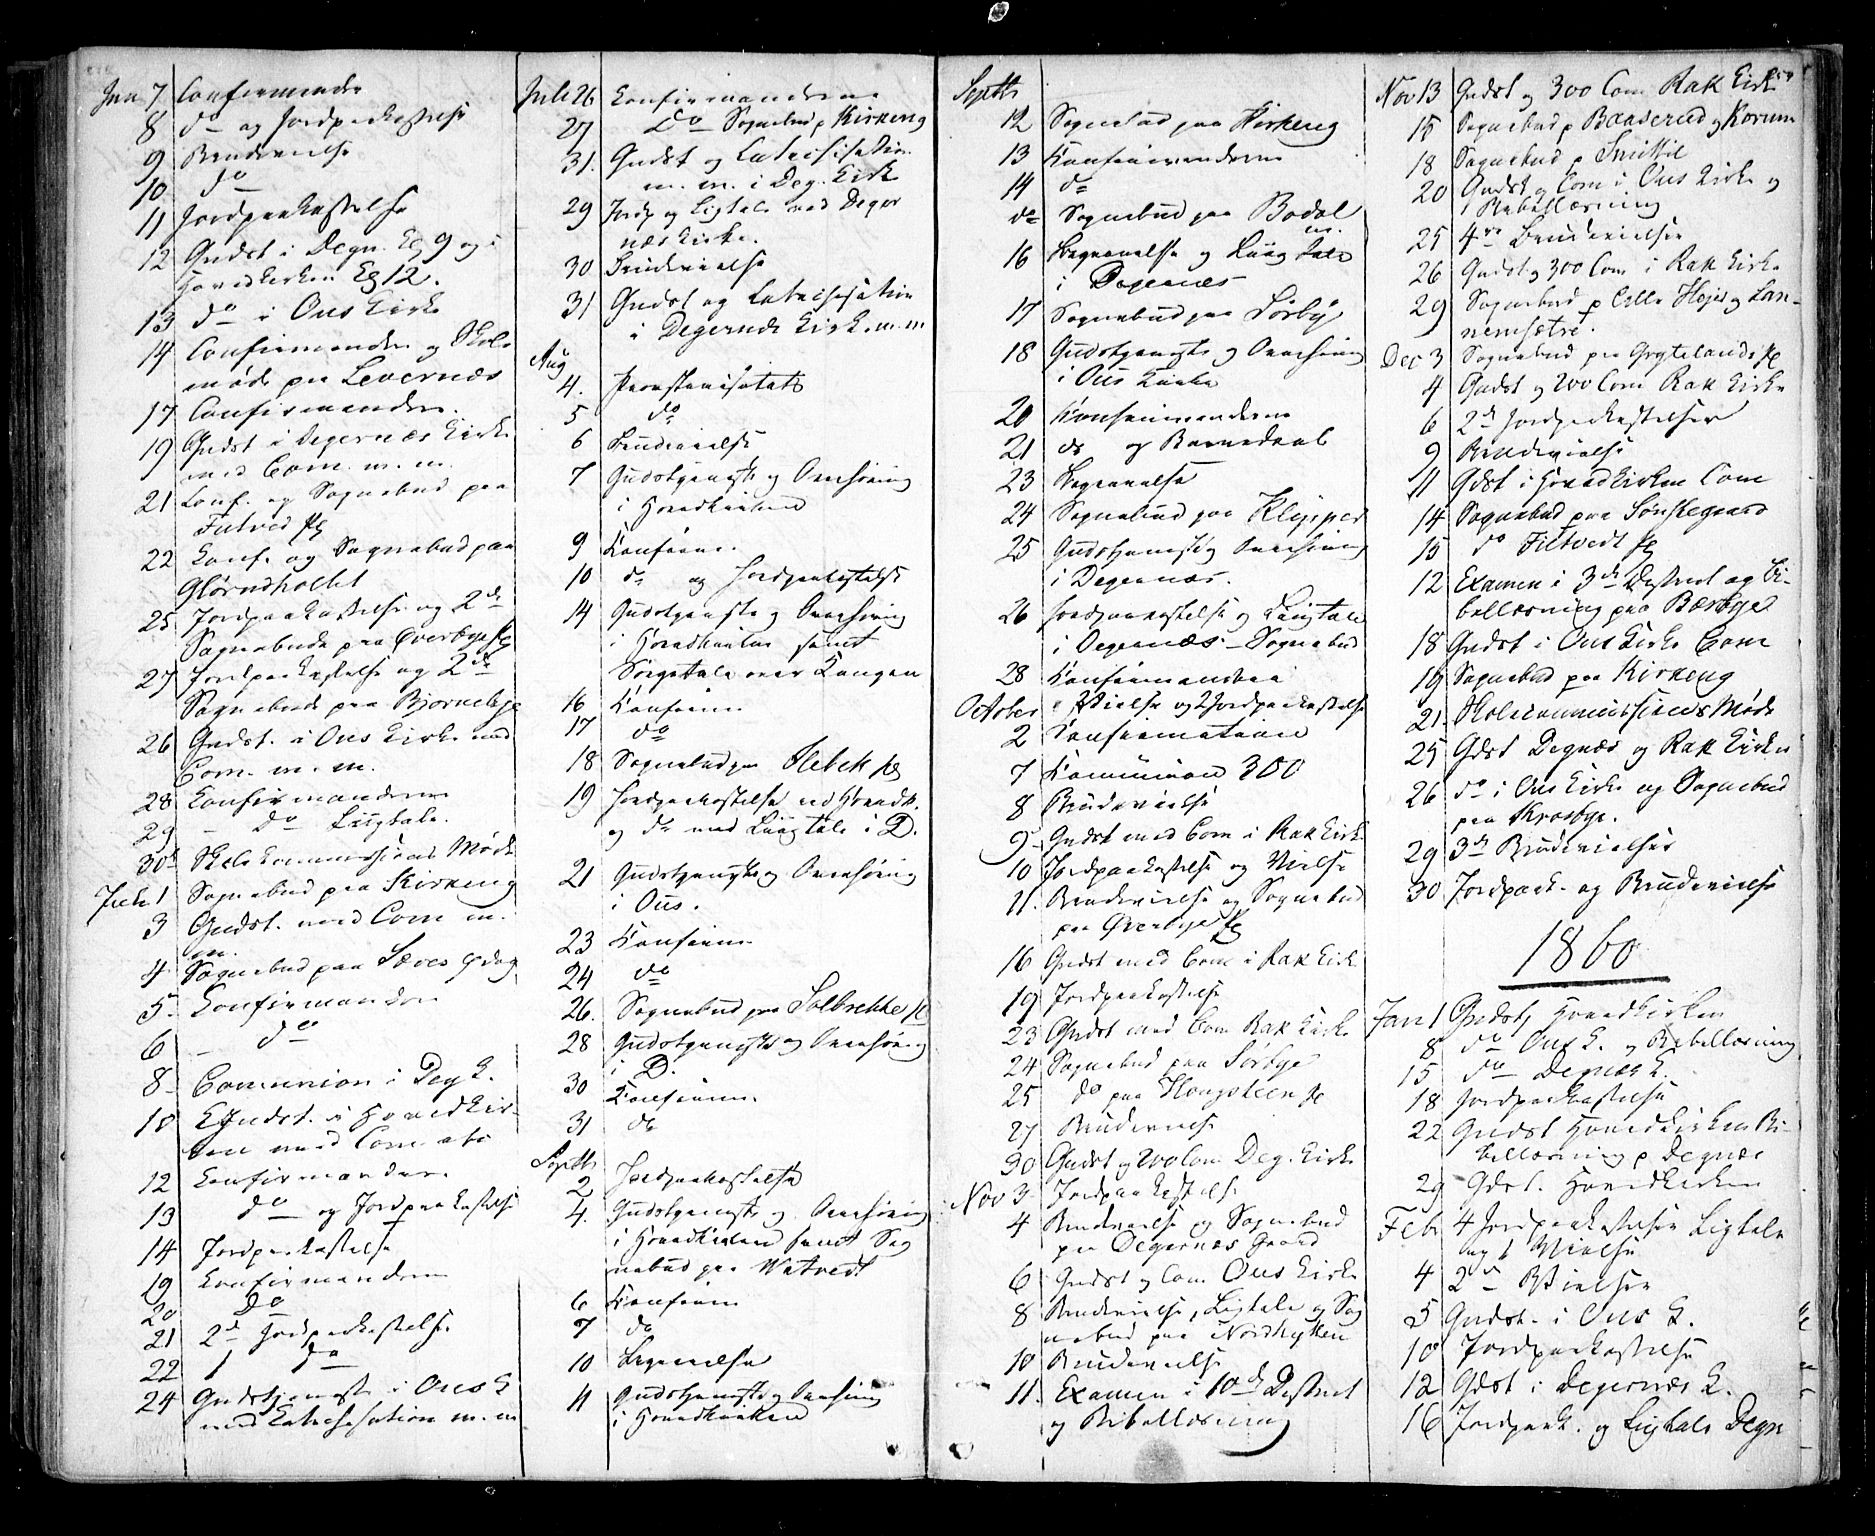 Jun 7 Confirmander
8 do og Jordpaakastelse
9 Brudevielse
10 do
11 Jordpaakastelse
12 Gudst i Degn. Eg 9 og i
Hovedkirken Eg 12.
13 do i Ous Kirke
14 Confirmander og Skole
møde paa Levernæs
17 Confirmander.
19 Gudst i Degernæs Kirke
med Com. m. m.
21 Conf. og Sognebud paa
Filtved
22 Conf. og Sognebud paa
Glørudholtet
25 Jordpaakastelse og 2de
Sognebude paa Overbye
27 Jordpaakastelse og 2de
Sognebude paa Bjørnebye
26 Gudst. i Ous Kirke med
Com. m. m.
28 Confirmanderne
29 - do Liigtale.
30 Skolekommissions Møde
Juli 1 Sognebud paa Kirkeng
3 Gudst. med Com m.
m.
4 Sognebud paa
5 Confirmander
6 - do
8 Communion i Deg K.
10 Gudst. i Hovedkir-
ken med Com
12 Confirmander
13 do og Jordpaakastelse
14 Jordpaakastelse
19 Confirmanderne
20 Do
21 2de Jordpaakastelse
22 1 do
24 Gudstjeneste i Ous K
med Katechisation m. m
Juli 26 Confirmanderne
27 Do Sognebud p Kirkeng
31. Gudst og Catechisation
m. m. i Deg. Kirke
29 Jordp og Ligtale ved Deger
næs Kirke.
30 Brudevielse
31 Gudst og Catechisation
i Degernæs Kirke m. m
Aug
4.
5 do
6 Brudevielse
7 Gudstjeneste og Overhøring
i Hovedkirken
9 Konfirm.
10 do og Jordpaakastelse
14 Gudstjeneste og Overhøring
i Hovedkirken samt
Sørgetale over Kongen
16 Konfirm
17 do
18 Sognebud paa Slebek
19 Jordpaakastelse ved Hovedk.
og do med Liigtale i D.
21 Gudstjeneste og Overhøring
i Ous.
23 Konfirm
24 do
26. Sognebud paa Solbrekke
28 Gudstjeneste og Overhøring
i D.
30 Konfirm.
31 do
Septbr
2 Jordpaakastelse
4. Gudstjeneste og Overhøring
i Hovedkirken samt Sog
nebud paa Watvedt
6 Konfirm
7 do
10 Begravelse
11 Gudstjeneste og Overhøring
i Hovedkirken
Septbr
12 Sognebud paa Kirkeng
13 Konfirmanderne
14 do
do Sognebud paa Bodal
16 Begravelse og Liigtale
i Degernæs
17 Sognebud paa Sørby
18 Gudstjeneste og Overhøring
i Ous Kirke
20 Konfirmanderne
21 do og Barnedaab
23 Begravelse
24 Sognebud paa Klypper
25 Gudstjeneste og Overhøring
i Degernæs.
26 Jordpaakastelse og Liigtale
i Degernæs - Sognebud
28 Konfirmander
October 1 Vielse og 2 Jordpaakastelse
2 Confirmation
7 Kommunion 300
8 Brudevielse
9 Gudst med Com i Rak Kirke
10 Jordpaakastelse og Vielse
11. Brudevielse og Sognebud
paa Overbye
16 Gudst med Com i Rak Kirke
19 Jordpaakastelse
23 Gudst med Com Rak Kirke
24 Sognebud paa Sørbye
25 do paa Hougsteen
27 Brudevielse
30 Gudst og 200 Com Deg. Kirke
Nov 3 Jordpaakastelse
4 Brudevielse og Sognebud
paa Degernæs Gaard
6 Gudst og Com Ous Kirke
8 Brudevielse, Ligtale og Sog
nebud paa Nordbykken
10 Brudevielse
11. Examen i 10de Distrikt
og Bibellæsning
Nov 13 Gudst og 300 Com Rak Kirke
15 Sognebud p Baaserud og Korum
18 Sognebud p
20 Gudst og Com i Ous Kirke og
1 Bibellæsning
25 4re Brudevielser
26 Gudst og 300 Com i Rak Kirke
29 Sognebud p Lille Hojes og Lan-
nemsætre.
Dec 3 Sognebud paa Grytelands
4 Gudst og 200 Com Rak Kirke
6 2de Jordpaakastelser
9 Brudevielse
11 Gdst i Hovedkirken Com
14 Sognebud paa Sønstegaard
15 do Filtvedt
12 Examen i 3de Distrikt og Bi-
bellæsning paa Bærbye
18 Gudst i Ous Kirke Com
19 Sognebud paa Kirkeng
21. Skolecommissions Møde
25 Gdst Degnæs og Rak Kirke
26 do i Ous Kirke og Sognebud
paa Krosbye.
29 3de Brudevielser
30 Jordpaak. og Brudevielse
1860
Jan 1 Gudstj Hovedkirken
8 do Ous K. og Bibellæsning
15 do Degnæs K.
18 Jordpaakastelse
22 Gudst Hovedkirken Bi-
bellæsning p Degnæs
29 Gdst. Hovedkirken
Febr 4 Jordpaakastelser Ligtale
og 1 Vielse
4 2de Vielser
5 Gudst. i Ous K.
10 Jordpaakastelse
12 Gdst i Degernæs K.
16 Jordpaak. og Ligtale Degn